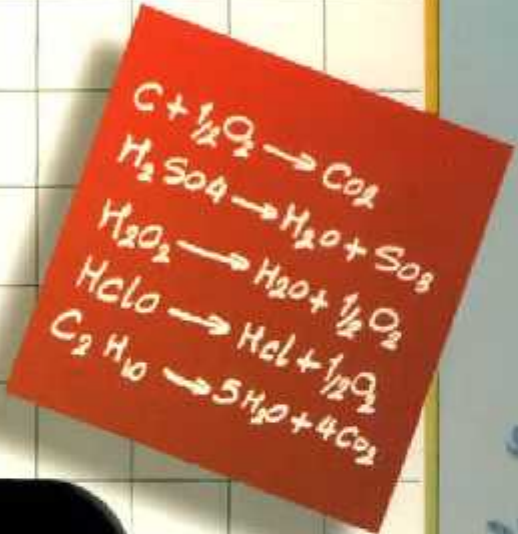 C + ½O₂ → CO₂
H₂SO4 → H₂O + SO₃
H₂O₂ → H₂O + ½O₂
HClO → HCl + ½O₂
C₂H₁₀ → 5H₂O + 4CO₂